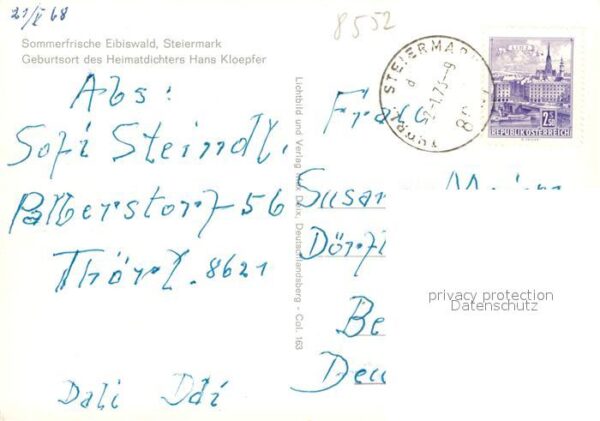 21/X 68
8552
Sommerfrische Eibiswald, Steiermark
Geburtsort des Heimatdichters Hans Kloepfer
Abs:
Sofi Steindl,
Palberstorf 56
Thörl. 8621
Dali
Lichtbild und Verlag Max Deix, Deutschlandsberg - Col. 163
STEIERMARK
LINZ
2.50
REPUBLIK ÖSTERREICH
Frau
Susan
Dörfl
Be
Deu
privacy protection
Datenschutz